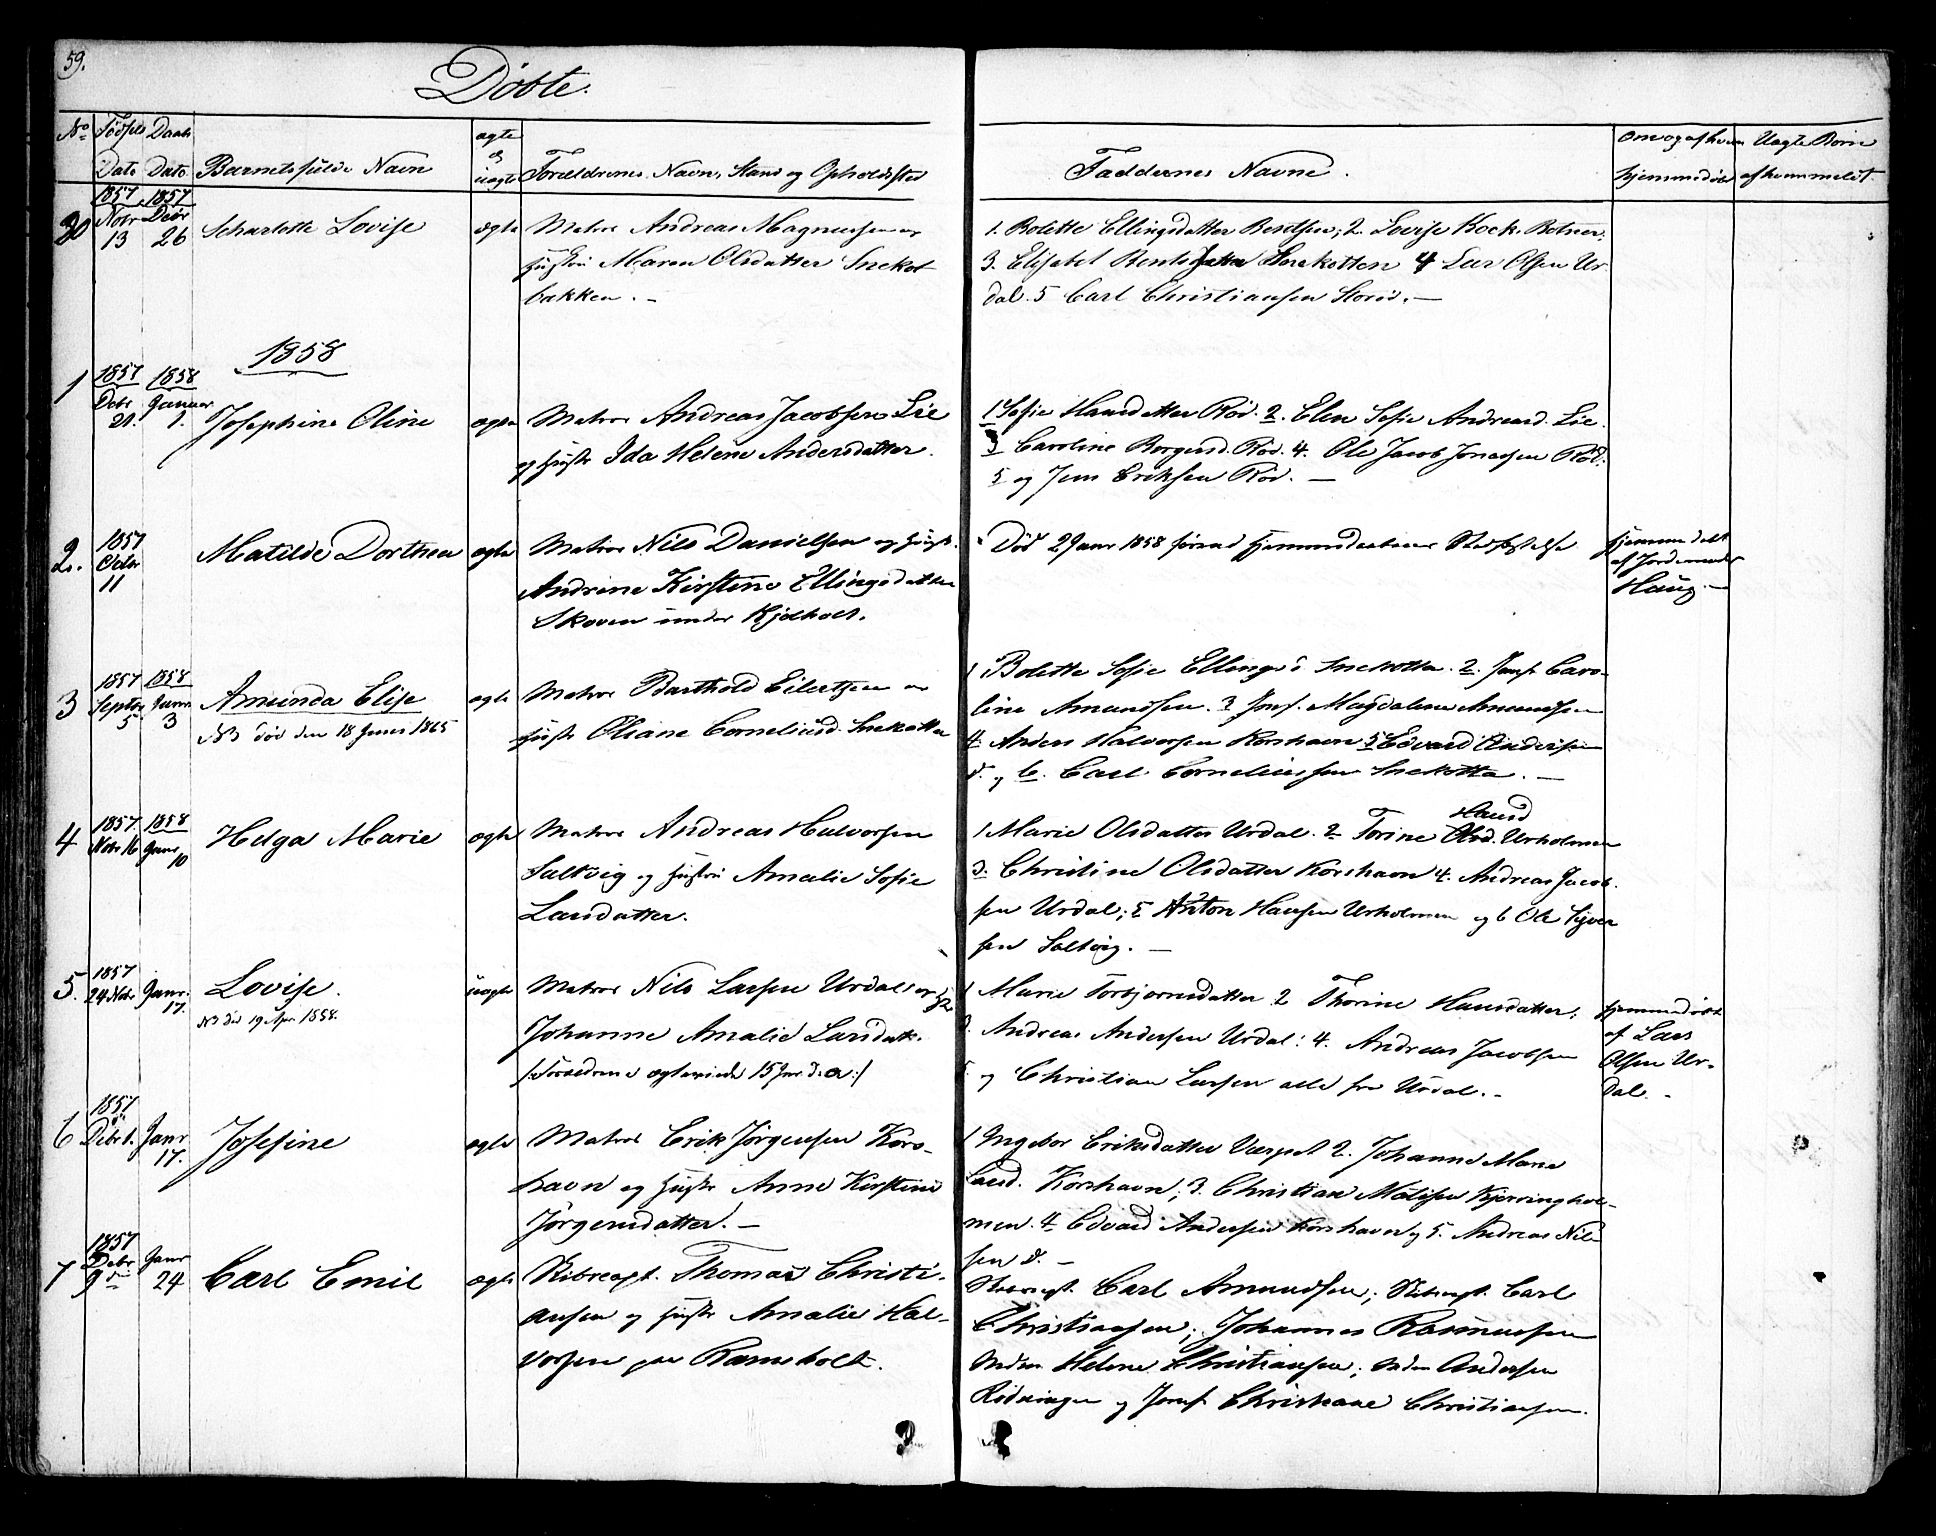 59.
Døbte.
No Fødsels Daabs ægte
Dato Dato Barnets fulde Navn uægte Forældrenes Navn, Stand og Opholdssted
Faddernes Navne.
om og af hvem hjemmedøbt
Uægte Børn
1857 1857
20 Novbr 13 Decbr 26 Scharlotte Lovise ægte Matros Andreas Magnussen og
Hustru Maren Olsdatter Snekot-
bakken. -
1. Bolette Ellingsdatter Berntsen; 2. Lovise Kock. Botner.
3. Elisabet Berntsdatter Snekotten 4 Lars Olsen Ur-
dal. 5 Carl Christiansen Storöe. -
1858
1 1857 Debr 21. 1858 Januar 1. Josephine Oline ægte Matros Andreas Jacobsen Lie
og Hustr Ida Helene Andersdatter.
1 Sofie Hansdatter Röd. 2. Elen Sofie Andreasd. Lie.
3 Caroline Borgersd. Röd. 4. Ole Jacob Jonassen Röd.
5 og Jens Eriksen Röd. -
2. 1857 Octbr 11 Matilde Dorthea ægte Matros Nils Danielsen og Hustr.
Andrine Kirstine Ellingsdatter
Skoven under Kjølholt.
Död 2 Janr 1858 förend Hjemmedaabens Stadfæstelse
Hjemmedöbt
af Jordemoder
Haug. -
3 1857 Septbr 5 1858 Janr 3 Amunda Elise ægte Matros Barthold Eilertsen og
NB död den 18 Juni 1865
Hustr Oliane Corneliusd. Snekotten
1 Bolette Sofie Ellingsd Snekotten. 2. Jomf. Caro-
line Amundsen. 3 Jomf. Magdalene Amundsen
4. Anders Halvorsen Korshavn 5 Edvard Andersen
d. og 6. Carl Corneliussen Snekotten. -
4 1857 Novbr 16 1858 Janr 10 Helga Marie ægte Matros Andreas Halvorsen
Saltvig og Hustru Amalie Sofie
Larsdatter.
Hansd
1 Marie Olsdatter Urdal. 2 Torine Olsd. Urholmen
3. Christine Olsdatter Korshavn 4. Andreas Jacob-
sen Urdal; 5 Anton Hansen Urholmen og 6 Ole Syver
sen Saltvig. -
5. 1857 24 Novbr Janr. 17. Lovise. uægte Matros Nils Larsen Urdal og
NB död 19 Apr 1858.
Johanne Amalie Larsdatt.
/: Forældrene ægteviede 15 Janr d. a :/
1 Marie Torbjornsdatter 2 Thorine Hansdatter;
3. Andreas Andersen Urdal; 4. Andreas Jacobsen
5 og Christian Larsen alle fra Urdal. -
Hjemmedöbt
af Lars
Olsen Ur-
dal. -
6 1857 Debr 1. Janr 17. Josefine ægte Matros Erik Jørgensen Kors-
havn og Hustr Anne Kirstine
Jørgensdatter. -
1 Ingebor Eriksdatter Værpet 2. Johanne Marie
Larsd. Korshavn; 3. Christian Matisen Kjerringhol-
men. 4 Edvard Andersen Korshavn og 5. Andreas Nil
sen d. -
7 1857 Debr 9de Janr 24 Carl Emil ægte Skibscapt. Thomas Christi-
ansen og Hustr Amalie Hal-
vorsen paa Ramsholt.
Skibscapt. Carl Amundsen; Skibscapt. Carl
Christiansen; Johannes Rasmussen
Madm Helene Christiansen; Madm Andersen
Rödningen og Jomf Christiane Christiansen.